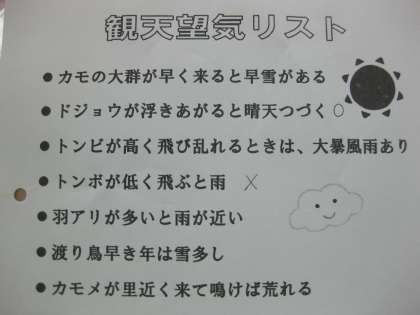 観天望気リスト
●カモの大群が早く来ると早雪がある
●ドジョウが浮きあがると晴天つづく ○
●トンビが高く飛び乱れるときは、大暴風雨あり
●トンボが低く飛ぶと雨 ×
●羽アリが多いと雨が近い
●渡り鳥早き年は雪多し
●カモメが里近く来て鳴けば荒れる